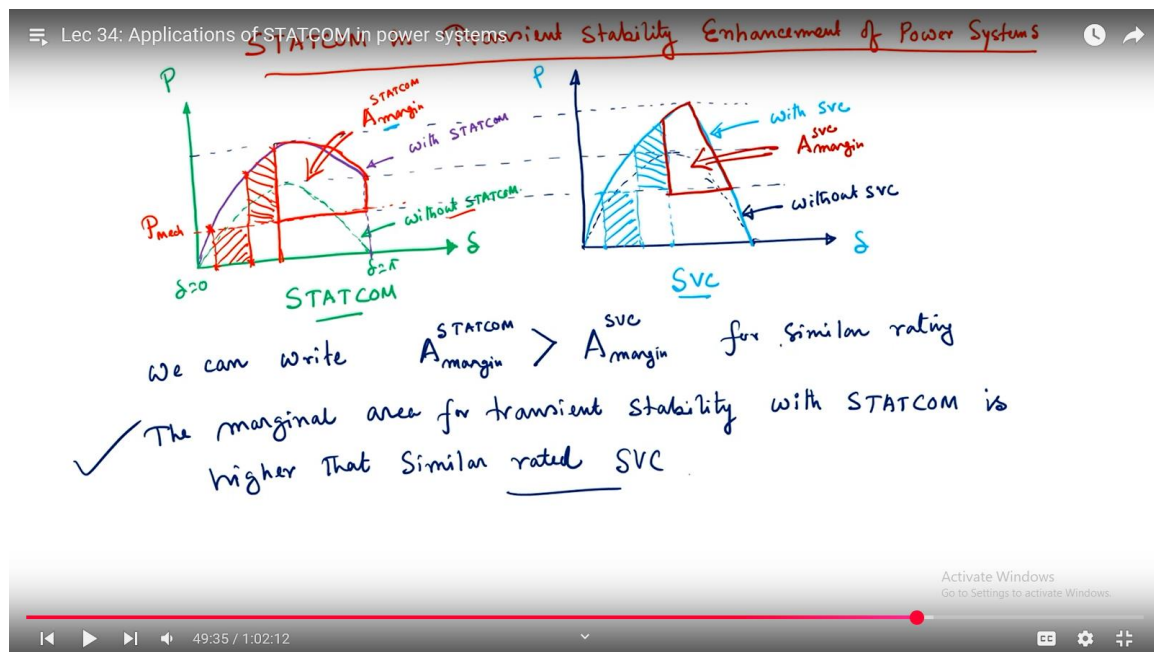 Lec 34: Applications of STATCOM in power systems
STATCOM in Transient Stability Enhancement of Power Systems
P
STATCOM
A margin
with STATCOM
P mech
without STATCOM
δ=0
δ=π
δ
STATCOM
P
with SVC
SVC
A margin
without SVC
δ
SVC
We can write A STATCOM margin > A SVC margin for similar rating
The marginal area for transient stability with STATCOM is
higher that similar rated SVC
Activate Windows
Go to Settings to activate Windows.
49:35 / 1:02:12
CC